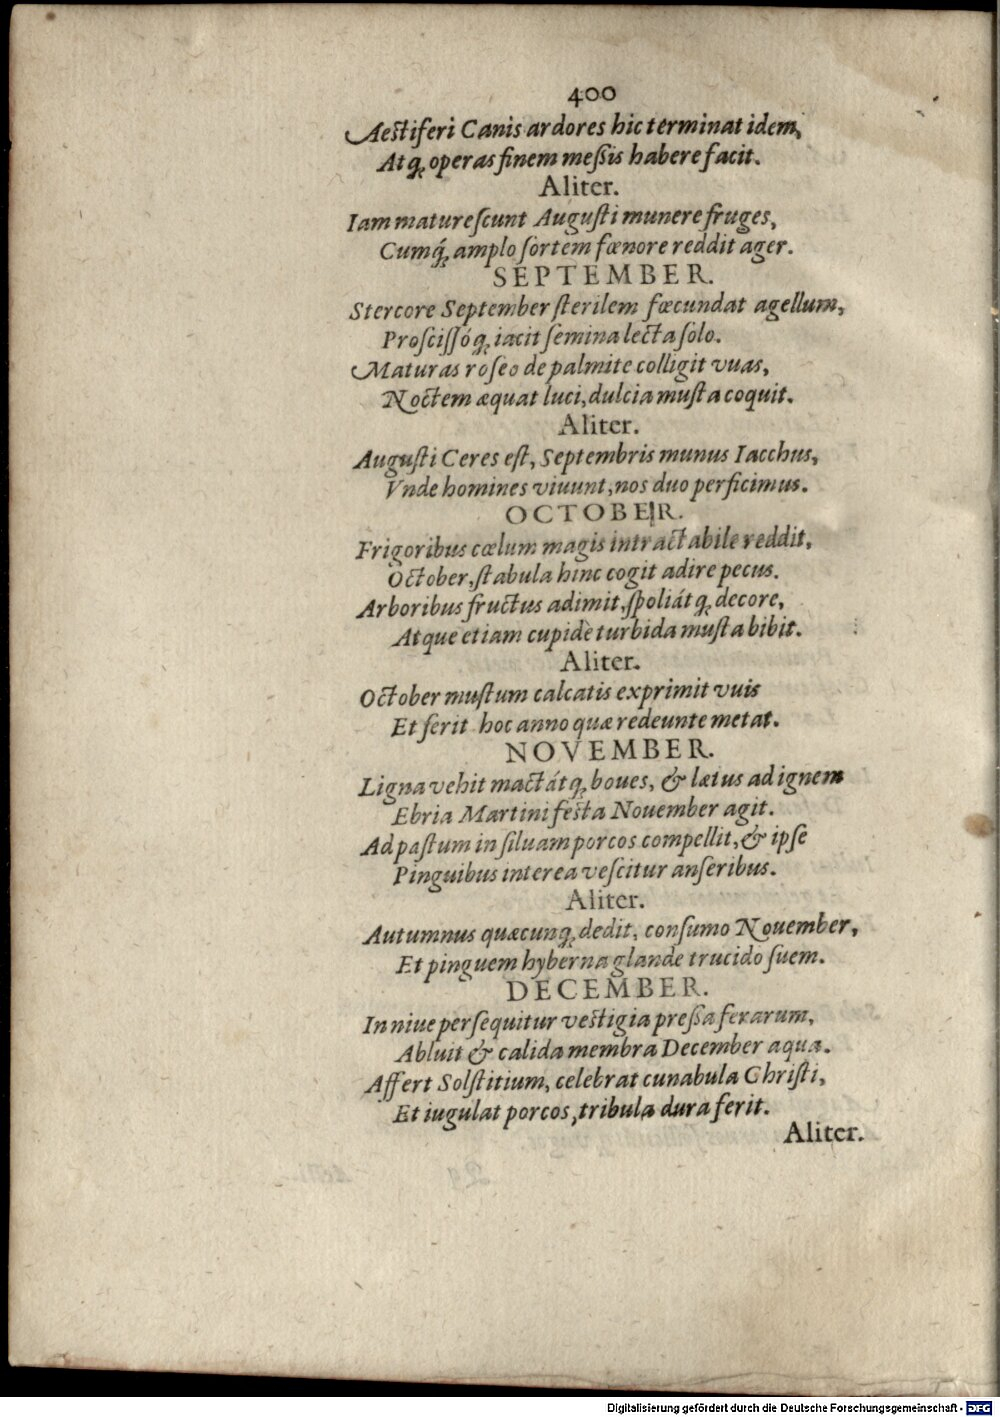 400
Aestiferi Canis ardores hic terminat idem,
Atq; operas finem meſsis habere facit.
Aliter.
Iam matureſcunt Auguſti munere fruges,
Cumq́; amplo ſortem fœnore reddit ager.
SEPTEMBER.
Stercore September ſterilem fœcundat agellum,
Proſciſſóq; iacit ſemina lecta ſolo.
Maturas roſeo de palmite colligit vuas,
Noctem æquat luci, dulcia muſta coquit.
Aliter.
Auguſti Ceres eſt, Septembris munus Iacchus,
Vnde homines viuunt, nos duo perficimus.
OCTOBER.
Frigoribus cœlum magis intractabile reddit,
October, ſtabula hinc cogit adire pecus.
Arboribus fructus adimit, ſpoliátq; decore,
Atque etiam cupide turbida muſta bibit.
Aliter.
October muſtum calcatis exprimit vuis
Et ſerit hoc anno quæ redeunte metat.
NOVEMBER.
Ligna vehit mactátq; boues, & lætus ad ignem
Ebria Martini feſta Nouember agit.
Ad paſtum in ſiluam porcos compellit, & ipſe
Pinguibus interea veſcitur anſeribus.
Aliter.
Autumnus quæcunq; dedit, conſumo Nouember,
Et pinguem hyberna glande trucido ſuem.
DECEMBER.
In niue perſequitur veſtigia preſſa ferarum,
Abluit & calida membra December aqua.
Affert Solſtitium, celebrat cunabula Chriſti,
Et iugulat porcos, tribula dura ferit.
Aliter.
Digitalisierung gefördert durch die Deutsche Forschungsgemeinschaft - DFG